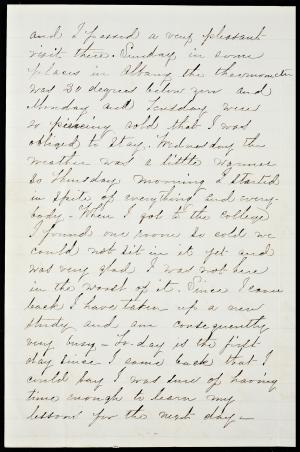 and I passed a very pleasant
visit there. Sunday in some
places in Albany the thermometer
was 30 degrees below zero and
Monday and Tuesday were
so piercing cold that I was
obliged to stay. Wednesday the
weather was a little warmer
so Thursday morning I started
in spite of everything and every-
body - When I got to the College
I found our room so cold we
could not sit in it yet and
was very glad I was not here
in the worst of it. Since I came
back I have taken up a new
study and am consequently
very busy - To-day is the first
day since I came back that I
could say I was sure of having
time enough to learn my
lessons for the next day -